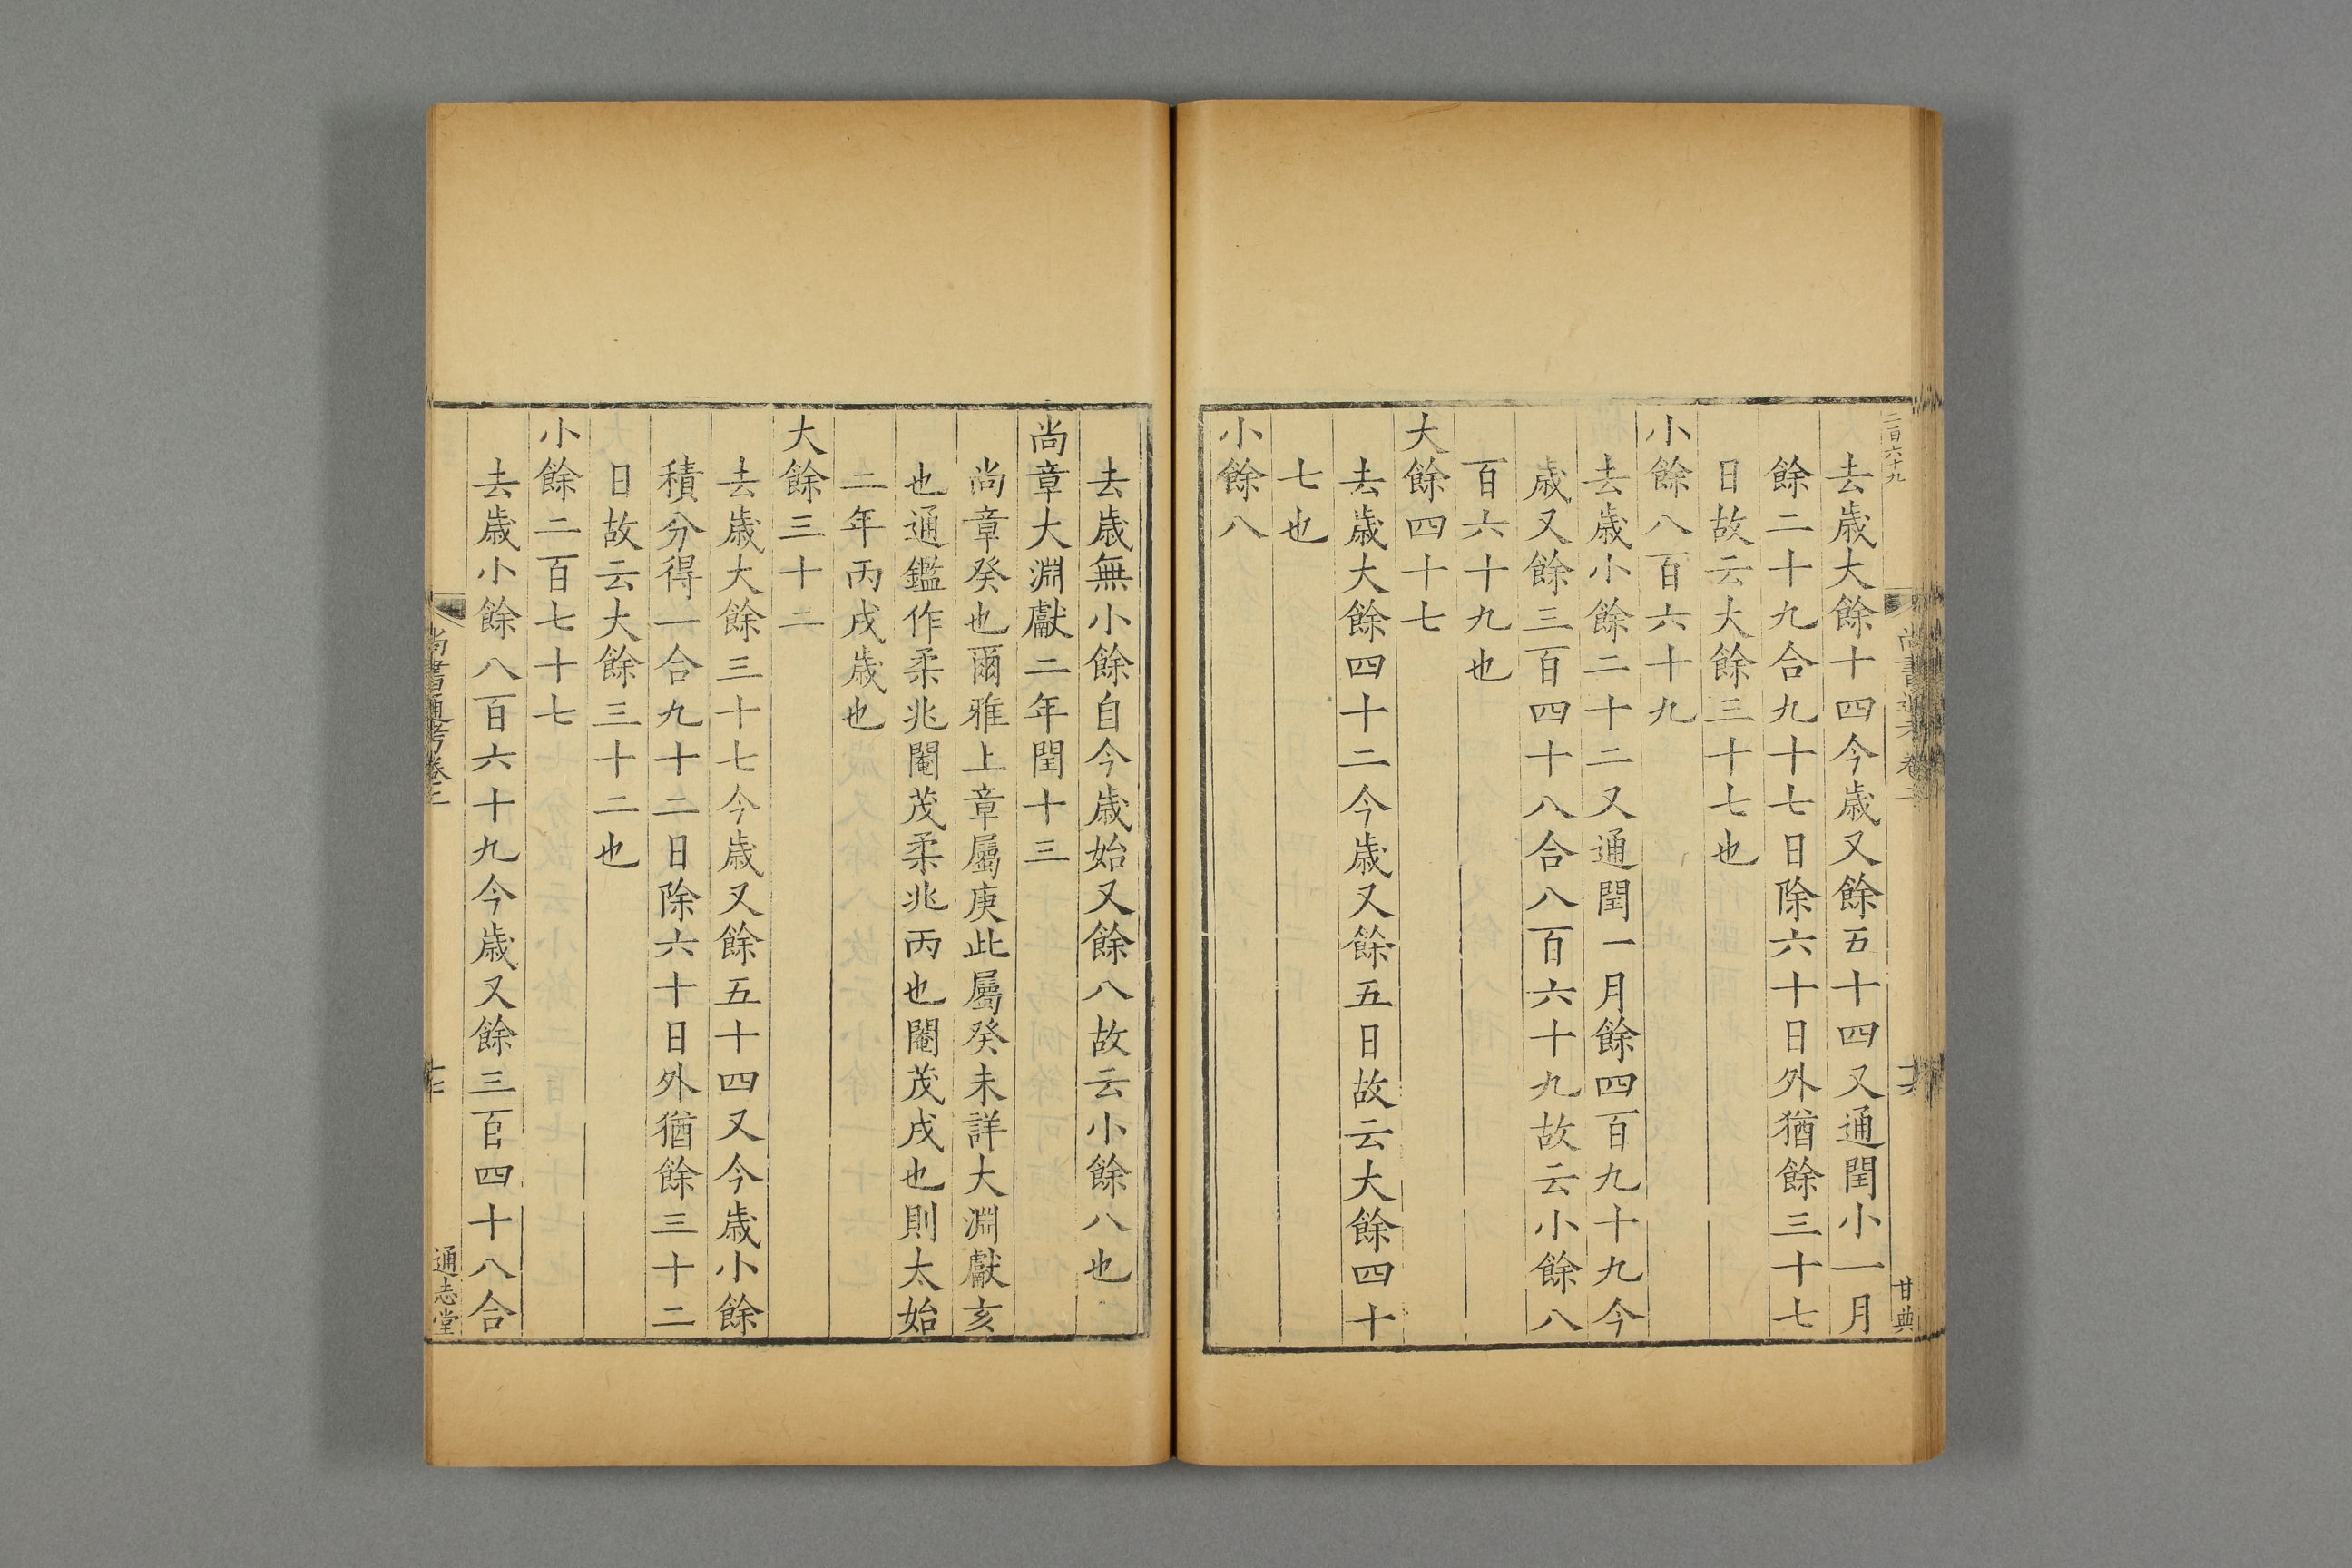 二百六十九
甘典
去歳大餘十四今歳又餘五十四又通閏小一月
餘二十九合九十七日除六十日外猶餘三十七
日故云大餘三十七也
小餘八百六十九
去歳小餘二十二又通閏一月餘四百九十九今
歳又餘三百四十八合八百六十九故云小餘八
百六十九也
大餘四十七
去歳大餘四十二今歳又餘五日故云大餘四十
七也
小餘八
去歳無小餘自今歳始又餘八故云小餘八也
尚章大淵獻二年閏十三
尚章癸也爾雅上章屬庚此屬癸未詳大淵獻亥
也通鑑作柔兆閹茂柔兆丙也閹茂戌也則太始
二年丙戌歳也
大餘三十二
去歳大餘三十七今歳又餘五十四又今歳小餘
積分得一合九十二日除六十日外猶餘三十二
日故云大餘三十二也
小餘二百七十七
去歳小餘八百六十九今歳又餘三百四十八合
尚書通考卷三
通志堂